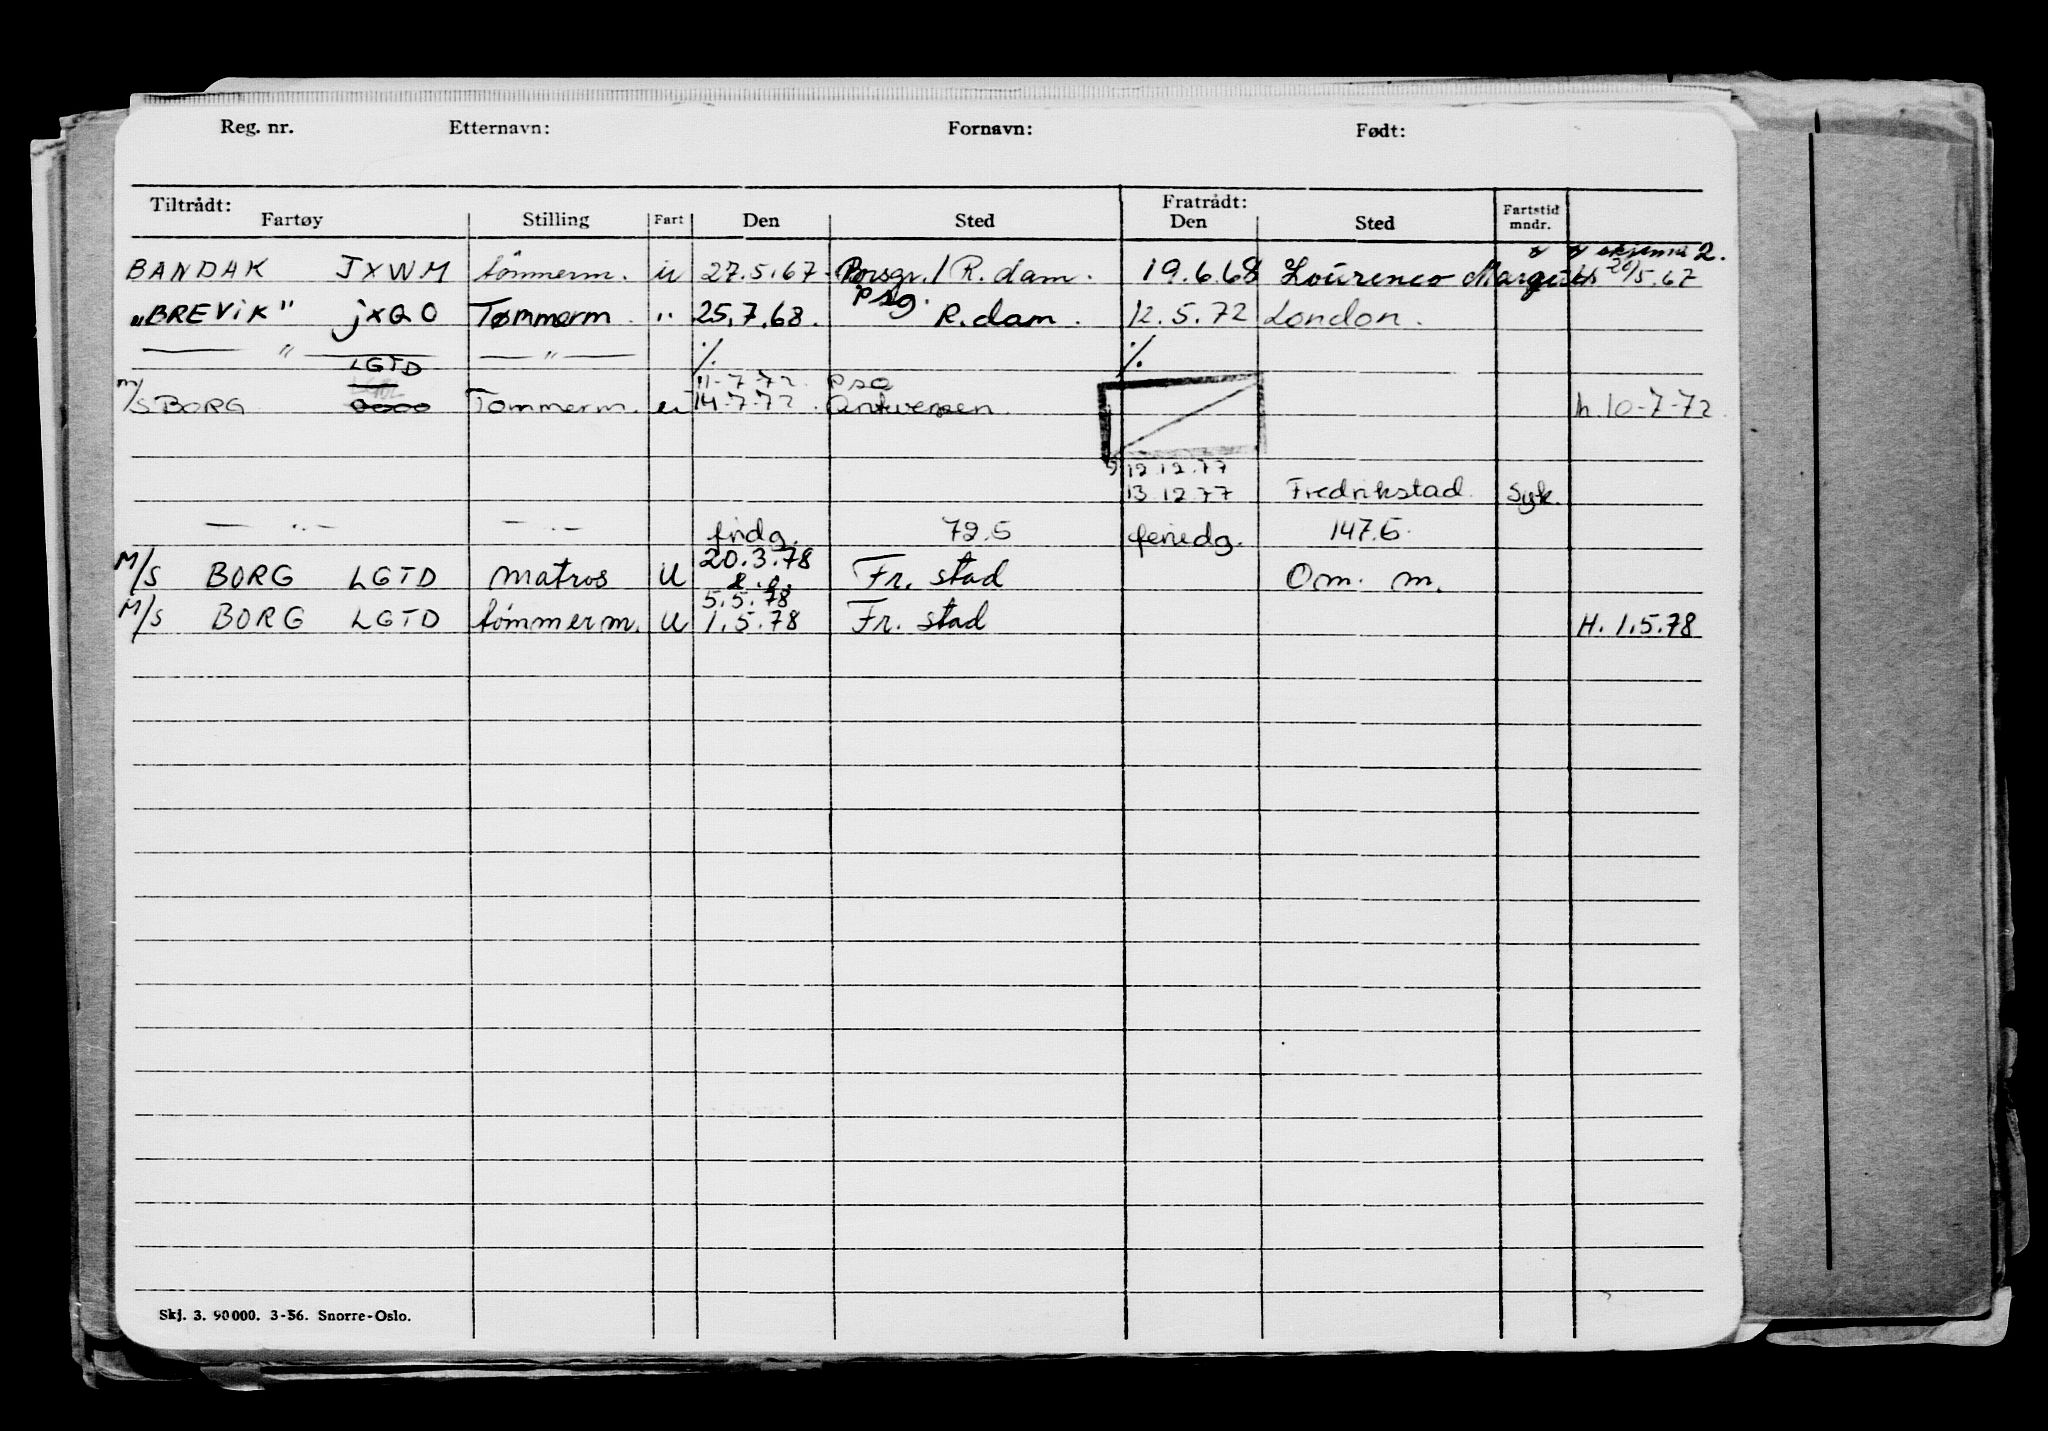 Reg. nr. Etternavn: Fornavn: Født:
Tiltrådt: Fratrådt:
Fartøy Stilling Fart Den Sted Den Sted Fartstid mndr.
skjema 2.
BANDAK JXWM tømmerm. u 27.5.67. Porsgr./R.dam. 19.6.68 Lourenco Marques 20/5.67
Psg.
"BREVIK" JXQO Tømmerm " 25.7.68. R.dam. 12.5.72 London.
— " — — " — ./. ./.
LGTD 11-7-72. psg
M/S BORG Tømmerm. u 14-7-72. Antwerpen. h. 10-7-72.
12.12.77
13.12.77 Fredrikstad. Syk.
— " — — " — fridg. 72.5 feriedg. 147.5.
20.3.78
M/S BORG LGTD matros U Fr. stad Om. m.
5.5.78
M/S BORG LGTD tømmerm. U 1.5.78 Fr. stad H. 1.5.78
Skj. 3. 90000. 3-56. Snorre-Oslo.